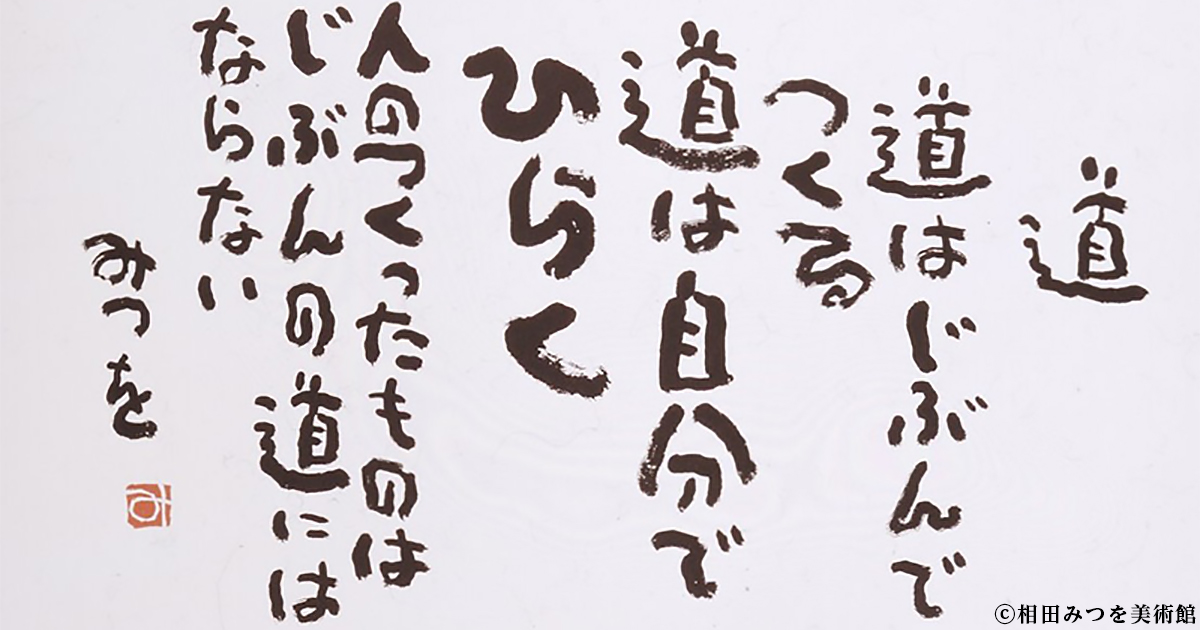 道
道はじぶんで
つくる
道は自分で
ひらく
人のつくったものは
じぶんの道には
ならない
みつを
み
©相田みつを美術館